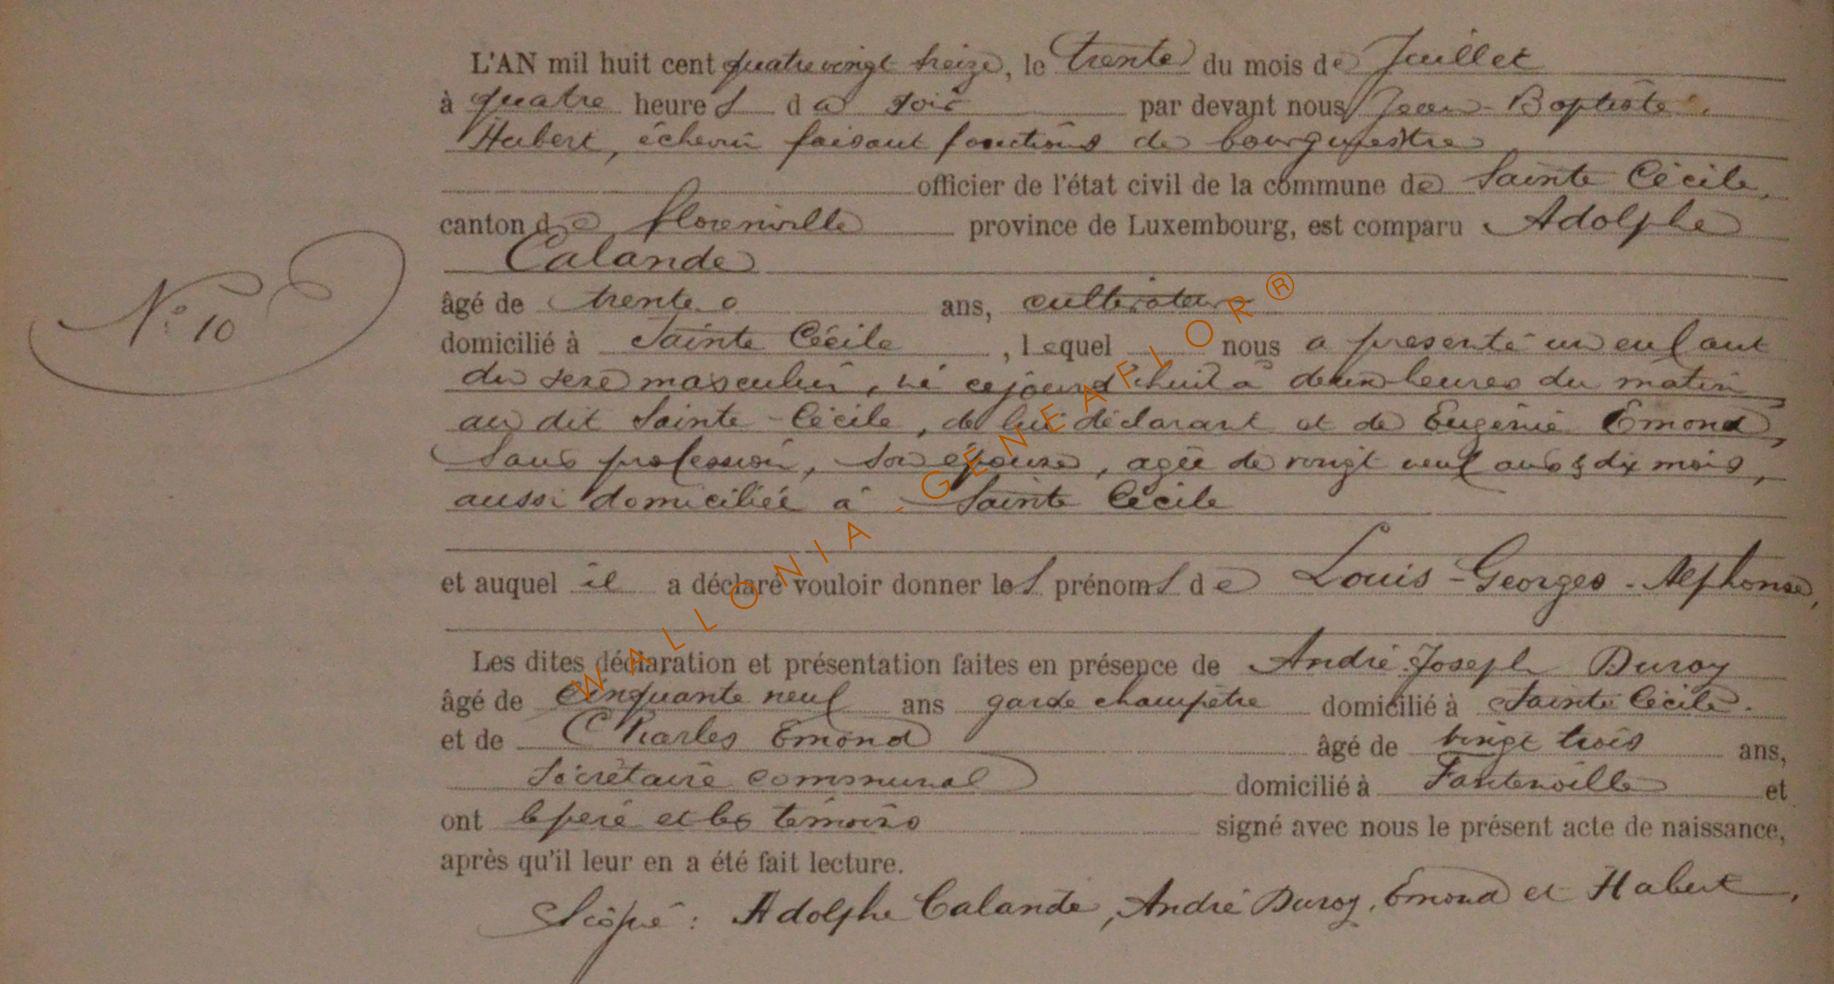 L'AN mil huit cent quatre vingt treize, le trente du mois de Juillet
à quatre heures du soir par devant nous Jean-Baptiste
Habert, échevin faisant fonctions de bourgmestre
officier de l'état civil de la commune de Sainte Cécile,
canton de Florenville province de Luxembourg, est comparu Adolphe
Calande
âgé de trente ans, cultivateur
domicilié à Sainte Cécile, lequel nous a présenté un enfant
du sexe masculin, né cejourd'huil à deux heures du matin
au dit Sainte-Cécile, de lui déclarant et de Eugénie Emond,
sans profession, son épouse, agée de vingt neuf ans & dix mois,
aussi domiciliée à Sainte Cécile
N° 10
et auquel il a déclaré vouloir donner les prénoms de Louis-Georges-Alphonse,
Les dites déclaration et présentation faites en présence de André Joseph Duroy
âgé de cinquante neuf ans garde champêtre domicilié à Sainte Cécile.
et de Charles Emond âgé de vingt trois ans,
Sécrétaire communal domicilié à Fontenoille et
ont le père et les témoins signé avec nous le présent acte de naissance,
après qu'il leur en a été fait lecture.
: Adolphe Calande, André Duroy, Emond et Habert.
WALLONIA - GENEAFLOR ®